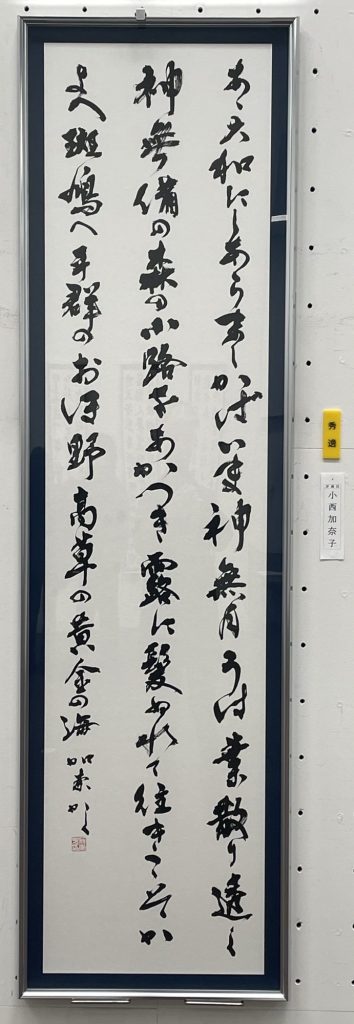 あゝ大和にしあらましかばいま神無月うは葉散り透く
神無備の森の小路をあかつき露に髪ぬれて往きこそか
よへ斑鳩へ平群のおほ野高草の黄金の海 加奈かく
秀逸
小西加奈子